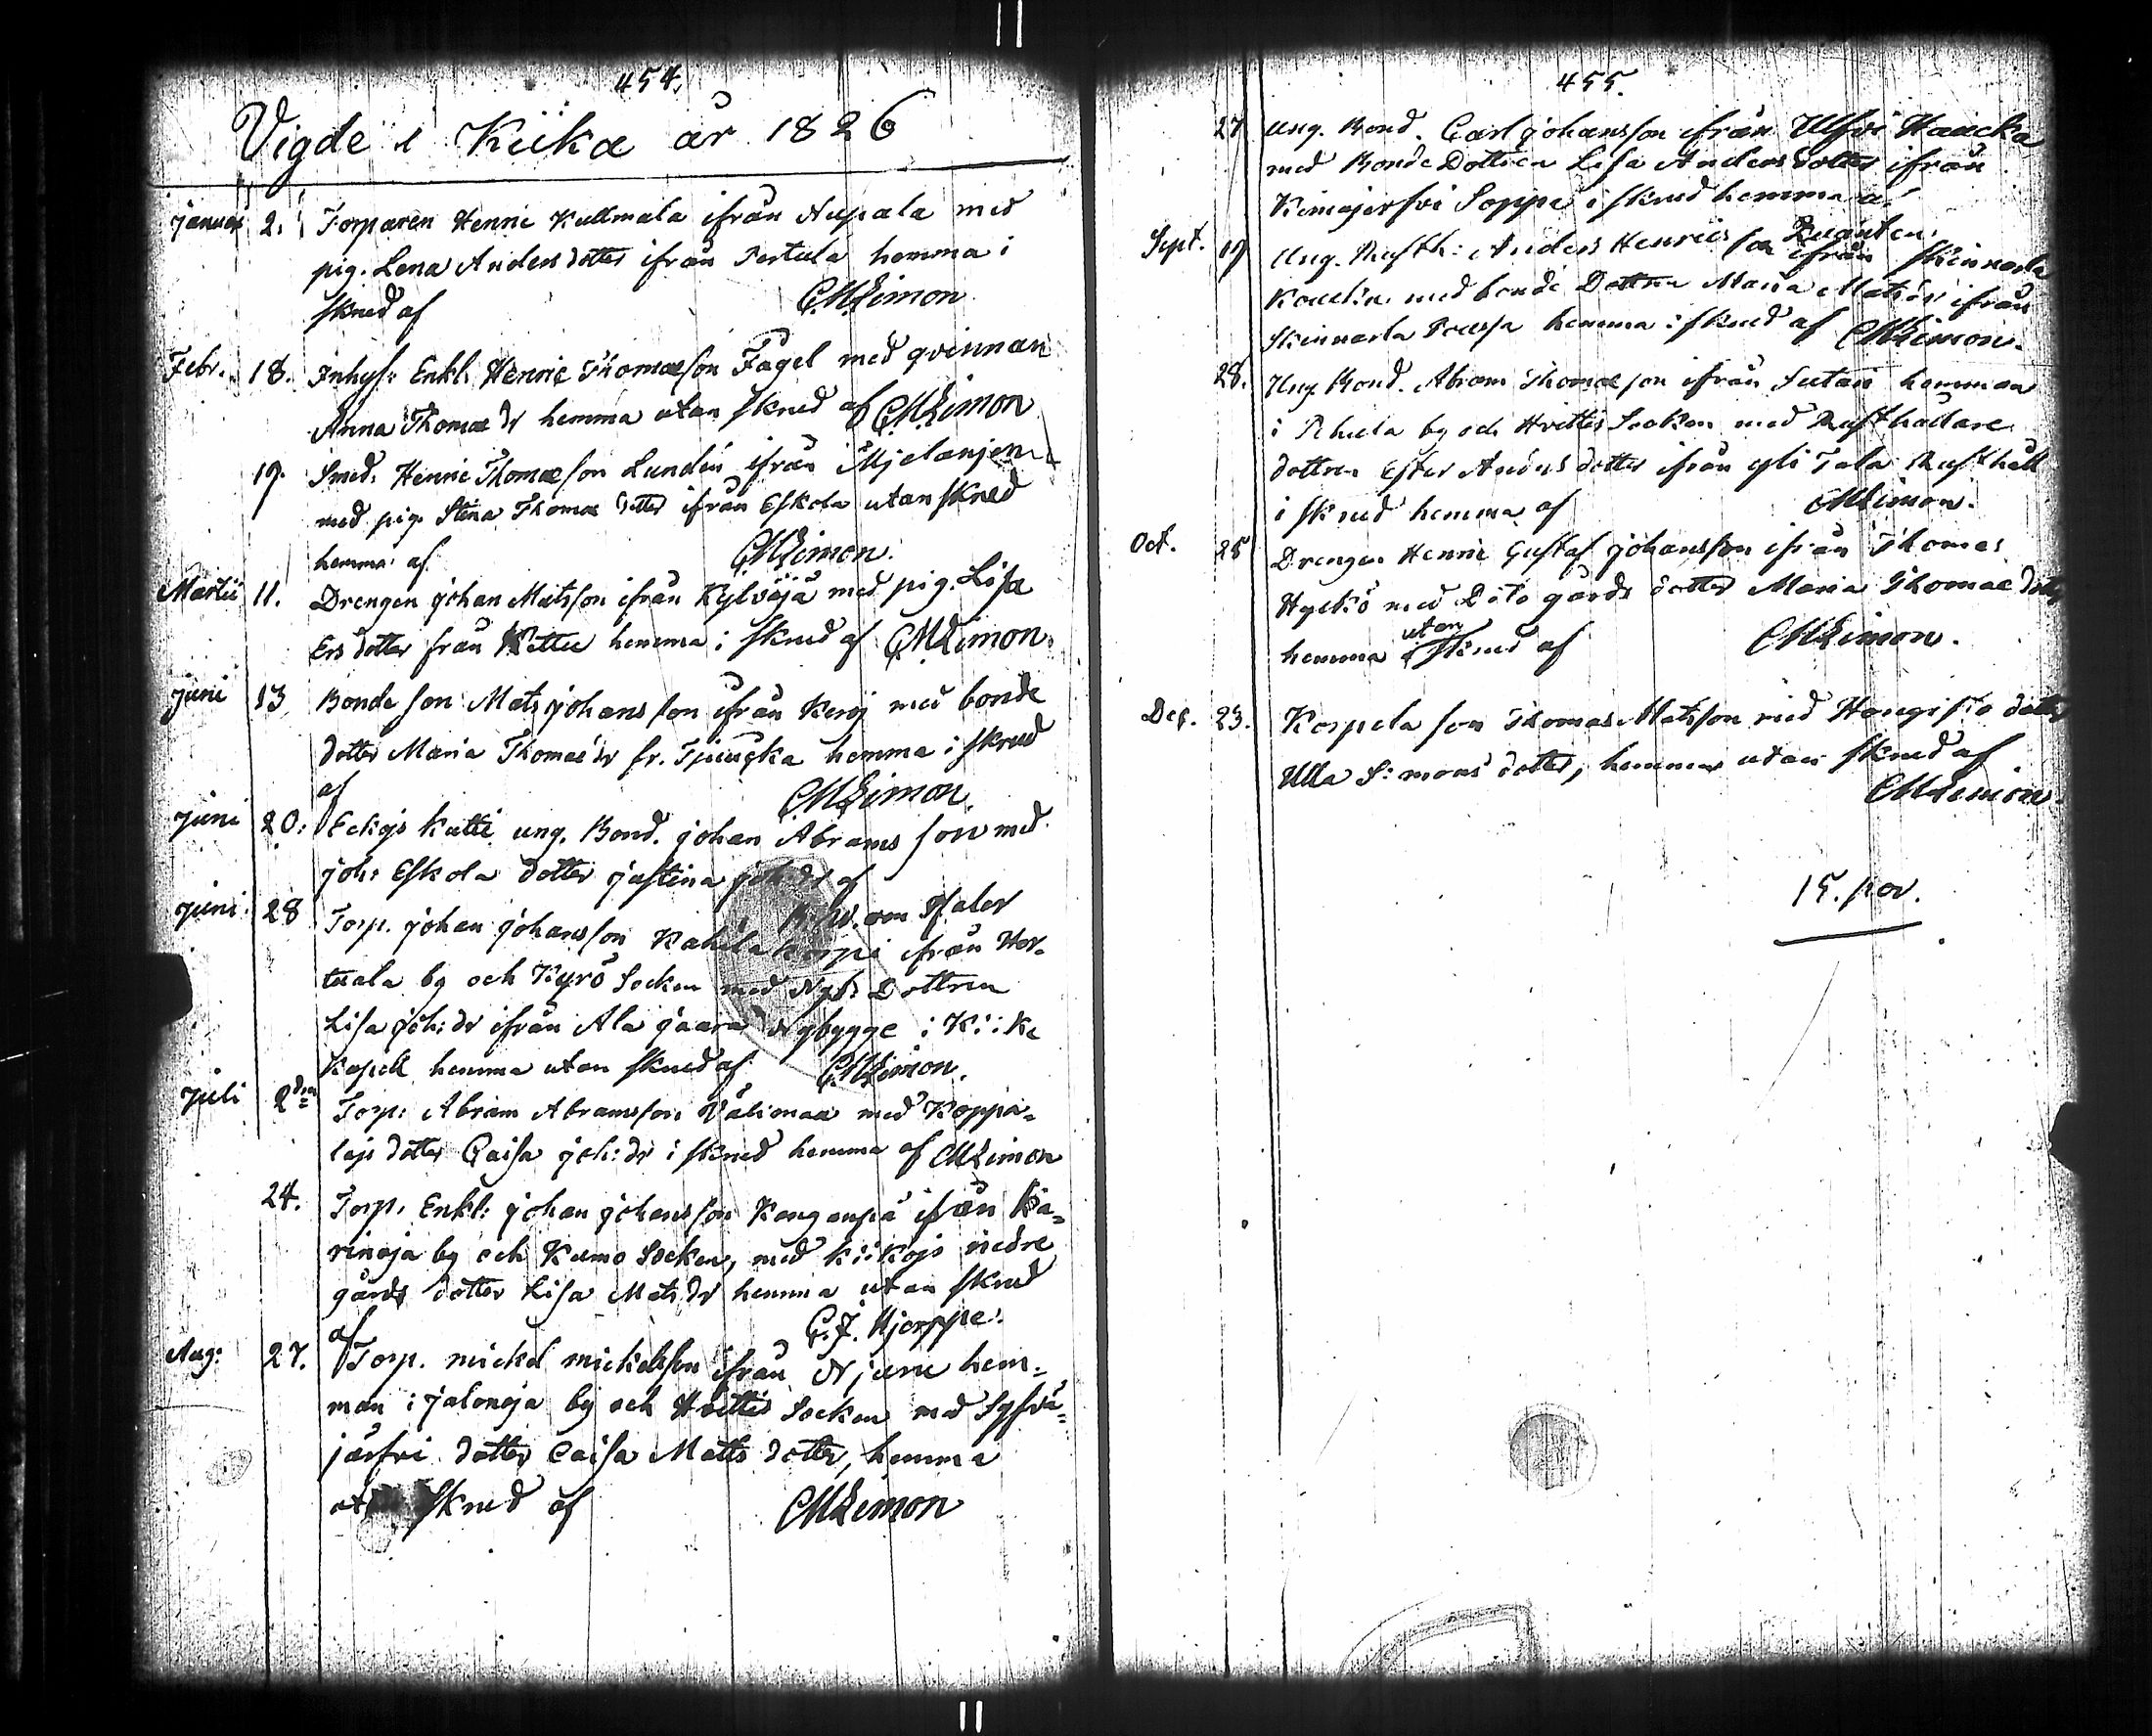 454.
Vigde i Kiika år 1826
Januarj 2. Torparen Henric Kullmala ifrån Aupala med
pig. Lena Anders dotter ifrån Pertula hemma i
skrud af CMLimon
Febr. 18. Inhys: Enkl. Henric Thomasson Fagel med qvinnan
Anna Thomae dr hemma utan skrud af CMLimon
19. Smed. Henric Thomasson Lundin ifrån
med pig. Stina Thomae dotter ifrån Eskola utan skrud
hemma af CMLimon.
Martii 11. Drengen Johan Matsson ifrån Kylväjä med pig. Lisa
Ers dotter från hemma i skrud af CMLimon.
Juni 13 Bonde son Mats Johansson ifrån med bonde
dotter Maria Thomae dr fr. hemma i skrud
af CMLimon.
Juni 20. Kutti ung. Bond. Johan Abrams son med
Joh: Eskola dotter Justina Joh: dr af
Juni 28 Torp. Johan Johansson ifrån
tuala by och Kyrö Socken med Nyb: Dottren
Lisa Joh: dr ifrån Ala Jaara Nybygge i Kiika
Kapell hemma utan skrud af CMLimon.
Juli 2dra Torp: Abram Abramsson Välimaa med Koppa-
laje dotter Caisa Joh: dr i skrud hemma af CMLimon
24. Torp. Enkl: Johan Johansson Kanganpä ifrån
rinoja by och Kumo Socken, med Kiikojs nedre
gårds dotter Lisa Mats dr hemma utan skrud
af G. J. Hjorppe.
Aug: 27. Torp. Mickel Mickelsson ifrån hem-
man i Jalonoja by och Hvittis Socken med
järfvi dotter Caisa Matts dotter, hemma
skrud af CMLimon
455.
27 Ung. Bond. Carl Johansson ifrån Ulfvi Haucka
med Bonde Dottren Lisa Anders dotter ifrån
Kimajerfvi Soppi i skrud hemma
Sept. 19 Ung. Rusth: Anders Henricsson ifrån Skinnarla
med bonde Dottren Maria Mats dr ifrån
Skinnarla hemma i skrud af CMLimon.
28. Ung. Bond. Abram Thomasson ifrån hemman
i by och Hvittis Socken med Rusthållare
dottren Ester Anders dotter ifrån Yli Tala Rusthåll
i skrud hemma af CMLimon.
Oct. 25 Drengen Henric Gustaf Johansson ifrån Thomas
med gårds dotter Maria Thomae dotter
hemma utan skrud af CMLimon.
Dec. 23. Korpela son Thomas Matsson med Hongisto dotter
Ulla Simons dotter, hemma utan skrud af
CMLimon.
15. par.